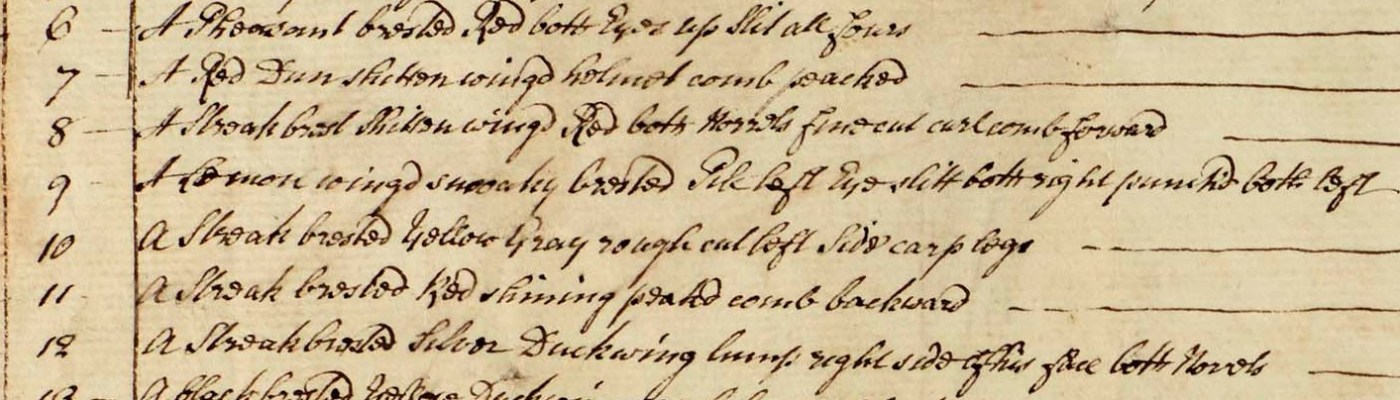 6 A Pheasant brested Red both Eyes up Slit all fours
7 A Red Dun shitten wingd helmet comb peacked
8 A Streak brest Shitten wingd Red both Norrels fine cut curl comb forward
9 A Lemon wingd smoaky brested Pile left Eye slitt both right punchd both left
10 A Streak brested Yellow Gray rough cut left Side carp legs
11 A Streak brested Red shining peakd comb backward
12 A Streak brested Silver Duckwing lump right side of his face both Norels
13 A black brested Yellow Duckwing